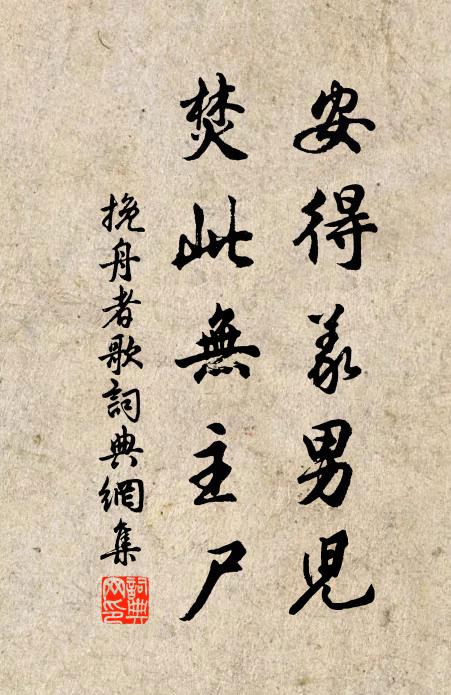 安得義男兒
焚此無主尸
挽舟者歌詞典網集
詞典网印